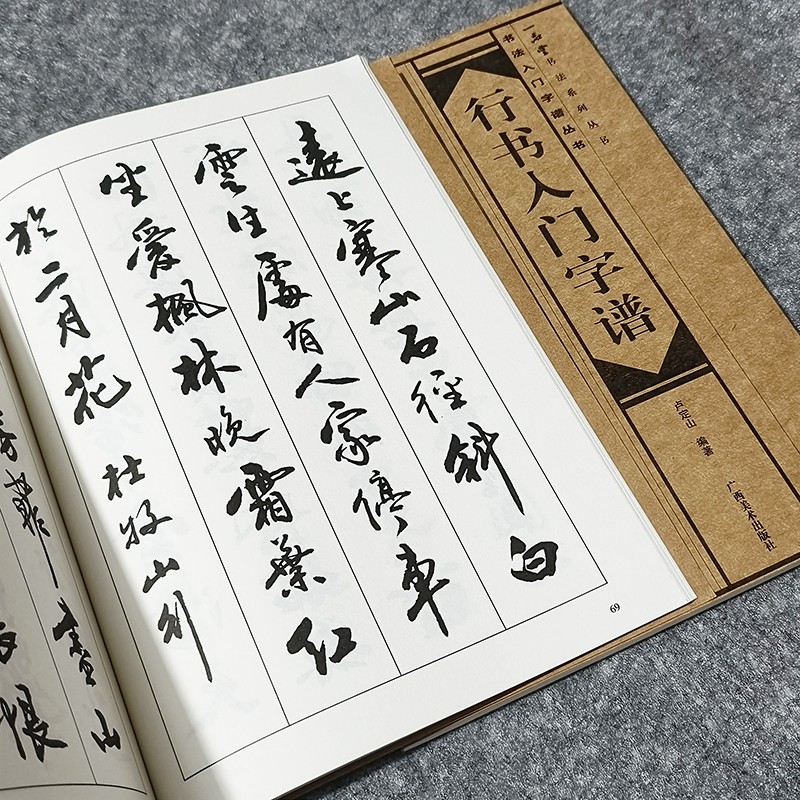 遠上寒山石徑斜白
雲生處有人家停車
坐愛楓林晚霜葉紅
於二月花 杜牧山行
69
恨
山
书法系列丛书
书法入门字谱丛书
行书入门字谱
卢定山 编著
广西美术出版社